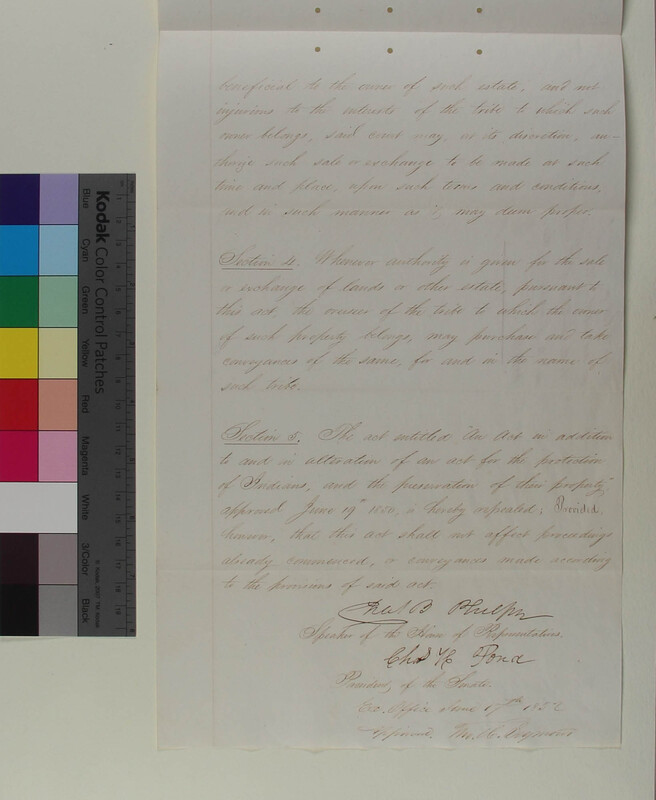 beneficial to the owner of such estate, and not
injurious to the interests of the tribe to which such
owner belongs, said court may, at its discretion, au-
thorize such sale or exchange to be made at such
time and place, upon such terms and conditions,
and in such manner as it may deem proper.
Section 4. Whenever authority is given for the sale
or exchange of lands or other estate, pursuant to
this act, the overseer of the tribe to which the owner
of such property belongs, may purchase and take
conveyances of the same, for and in the name of
such tribe.
Section 5. The act entitled "An Act in addition
to and in alteration of an act for the protection
of Indians, and the preservation of their property,"
approved June 19th is hereby repealed; Provided,
however, that this act shall not affect proceedings
already commenced, or conveyances made according
to the provisions of said act.
B Phelps
Speaker of the House of Representatives.
Chas H Pond
President, of the Senate.
Ex. Office June 17th 1852
Approved.
Kodak
Color Control Patches
Blue
Cyan
Green
Yellow
Red
Magenta
White
3/Color
Black